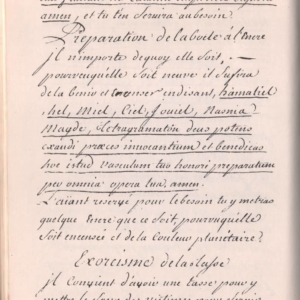 amen, et tu t'en servira au besoin.
Preparation de la boete à l'encre
jl n'importe dequoy elle Soit,
pourvuquélle Soit neuve il Sufira
de la benir et encenser endisant, himaliel
chel, Miel, Ciel, Jouiel, Nasma
Magde, Tetragramaton deus potens
exaudi præces invocantium et benedicas
hoc istud vasculum tuo honori preparatum
per omnia opera tua, amen.
L'aiant reservé pour lebesoin tu y metras
quelque encre que ce Soit pourvuquélle
Soit encensée et de la Couleur planétaire?
Exorcisme de la tasse
jl Convient d'avoir une tasse pour y
mettre le Sang des victimes